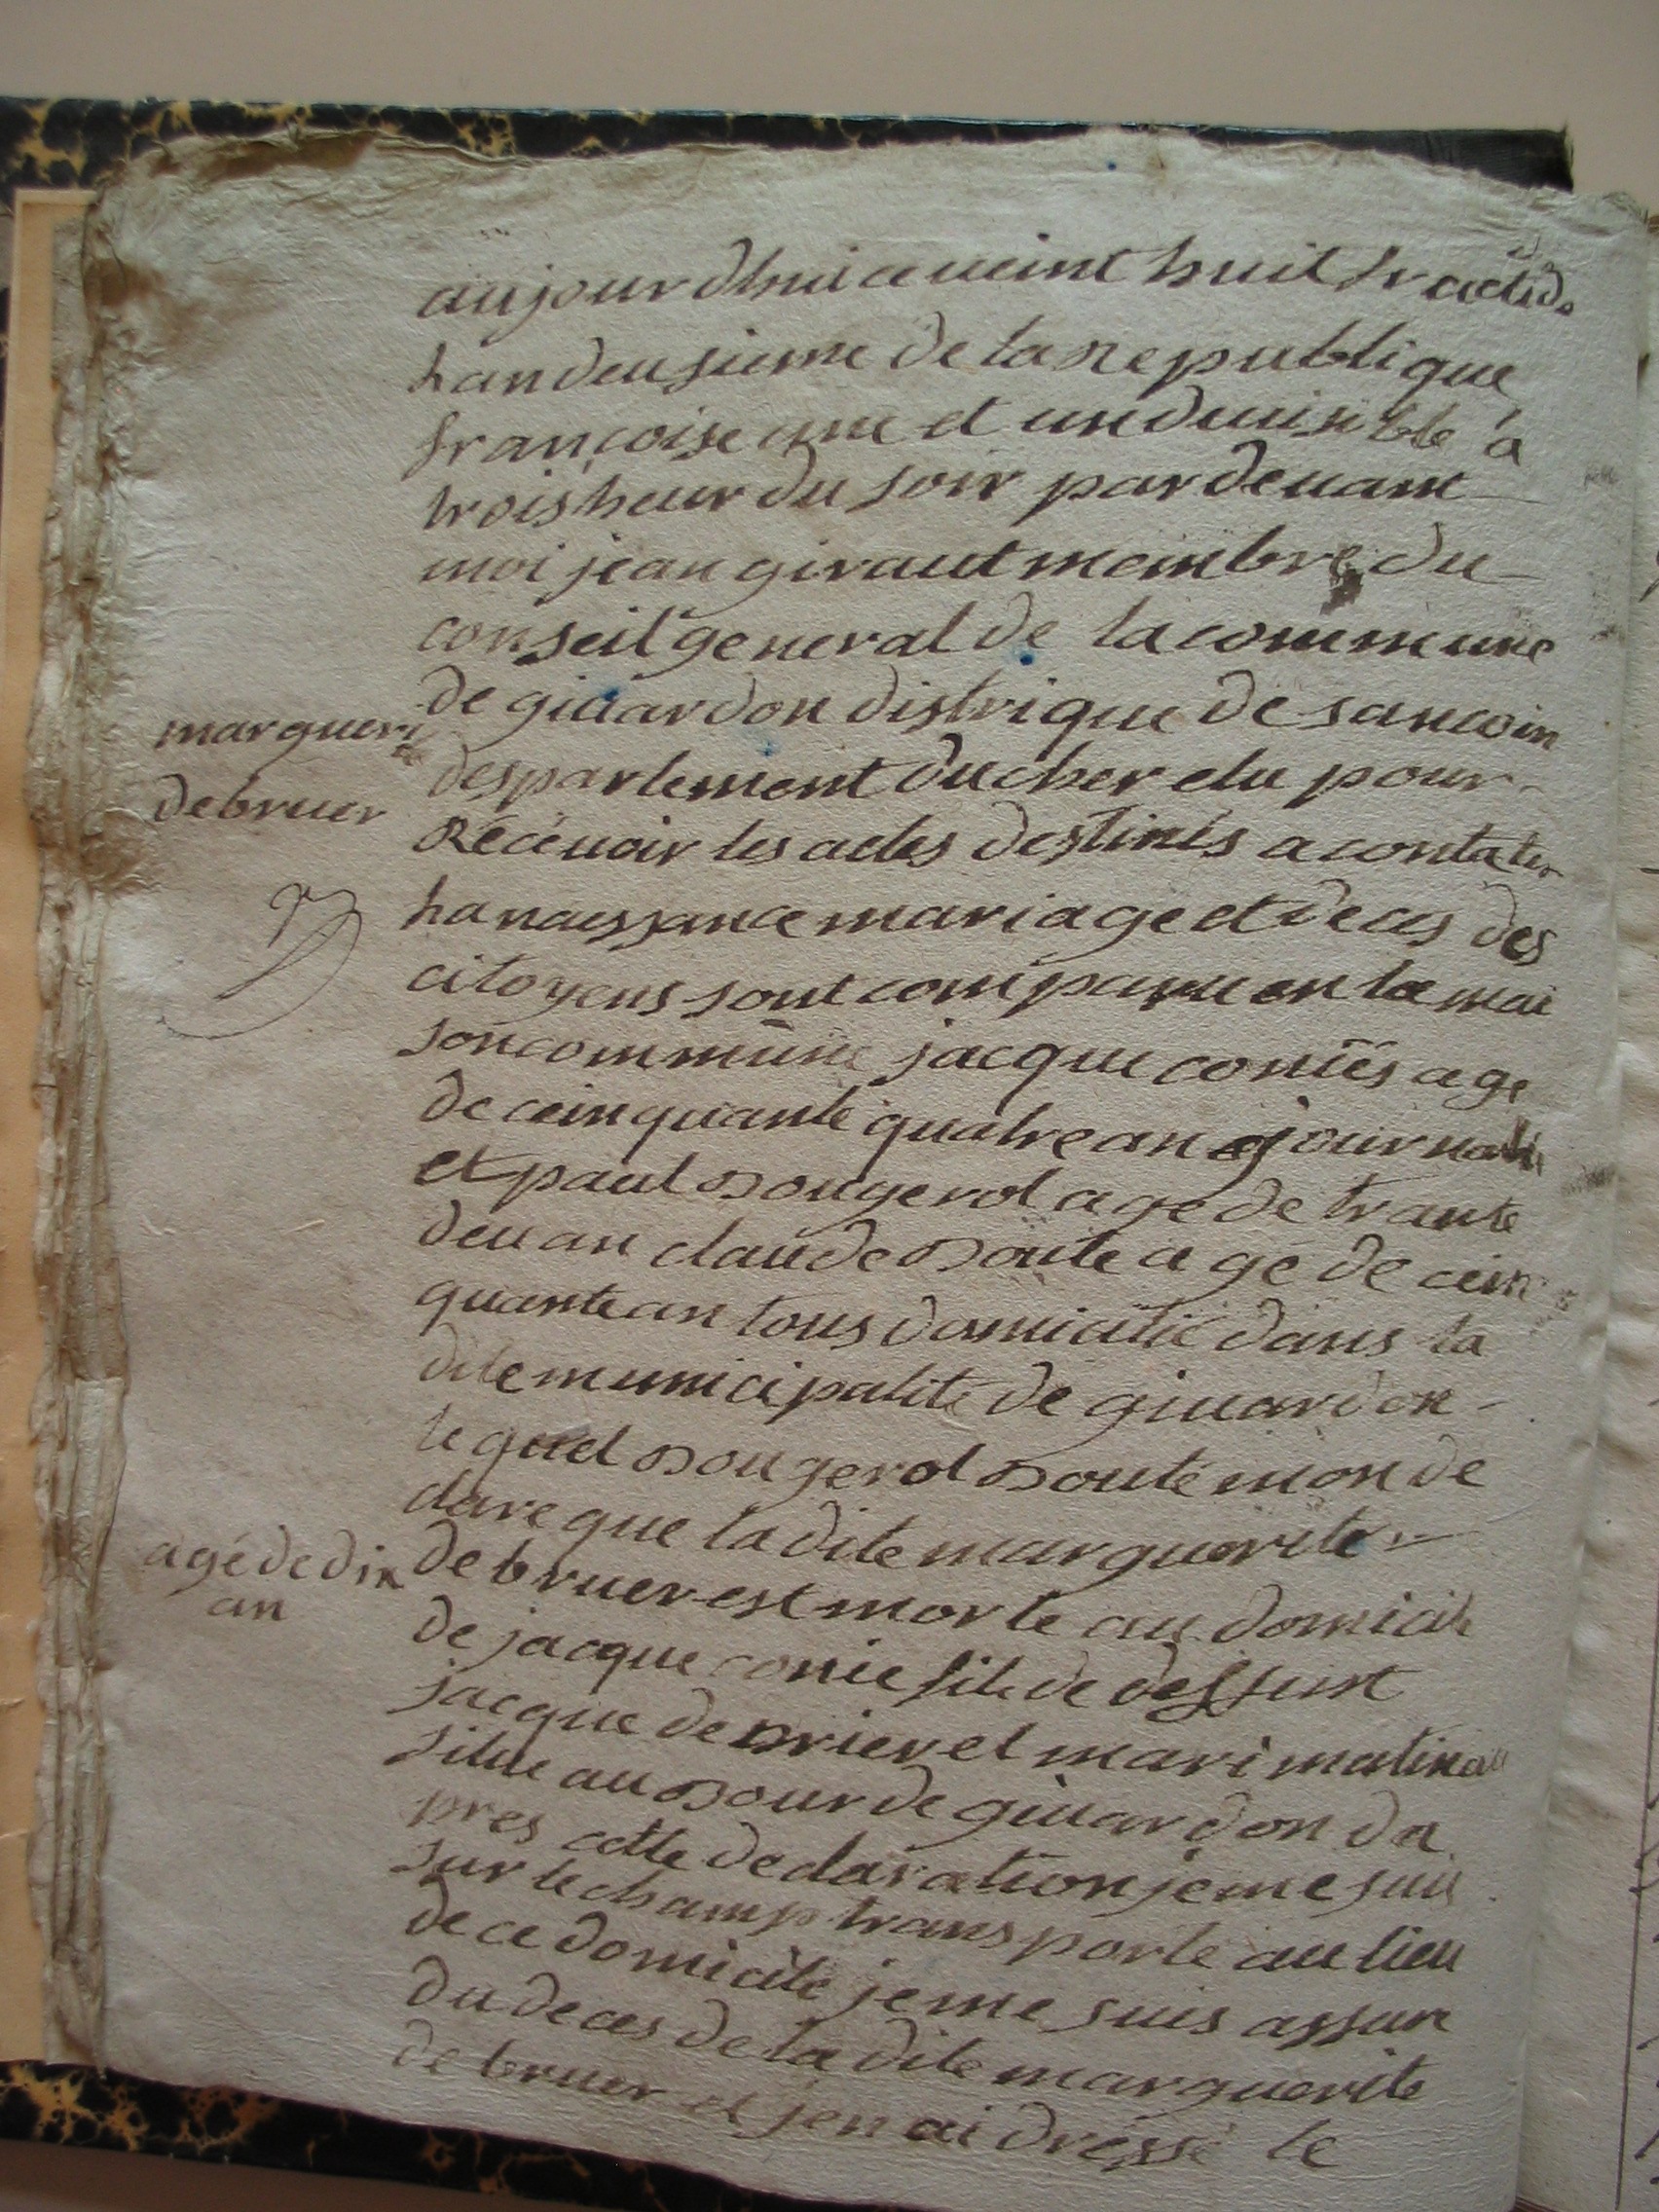 aujourdhui ce veint huit fr
handeusieme de la republique
françoise une et undivisible a
trois heur du soir pardevant
moi jean giraut membre du
conseil general de la commune
de givardon distrique de sancoin
desparlement du cher elu pour
Récévoir les actes destinés a contater
ha naissance mariage et deces des
marguerite
debruer
citoyens sont comparu en la mai
son commune jacque coniés age
de ceinquante quatre an journalié
et paul Rougerol age de trante
deu an claude Route age de cein
quante an tous domicilié dans la
dite municipalité de givardon
le quel Rougerol Route mon de
clare que la dite marguerite
debruer est morte au domicile
agé de dix
an
de jacque conie file de deffunt
jacque de brier et mari matina
situe au Bour de givardon da
pres cette declaration je me suis
sur le champ transporte au lieu
de ce domicile je me suis assure
du deces de la dite marguerite
de bruer et j'en ai dressé le